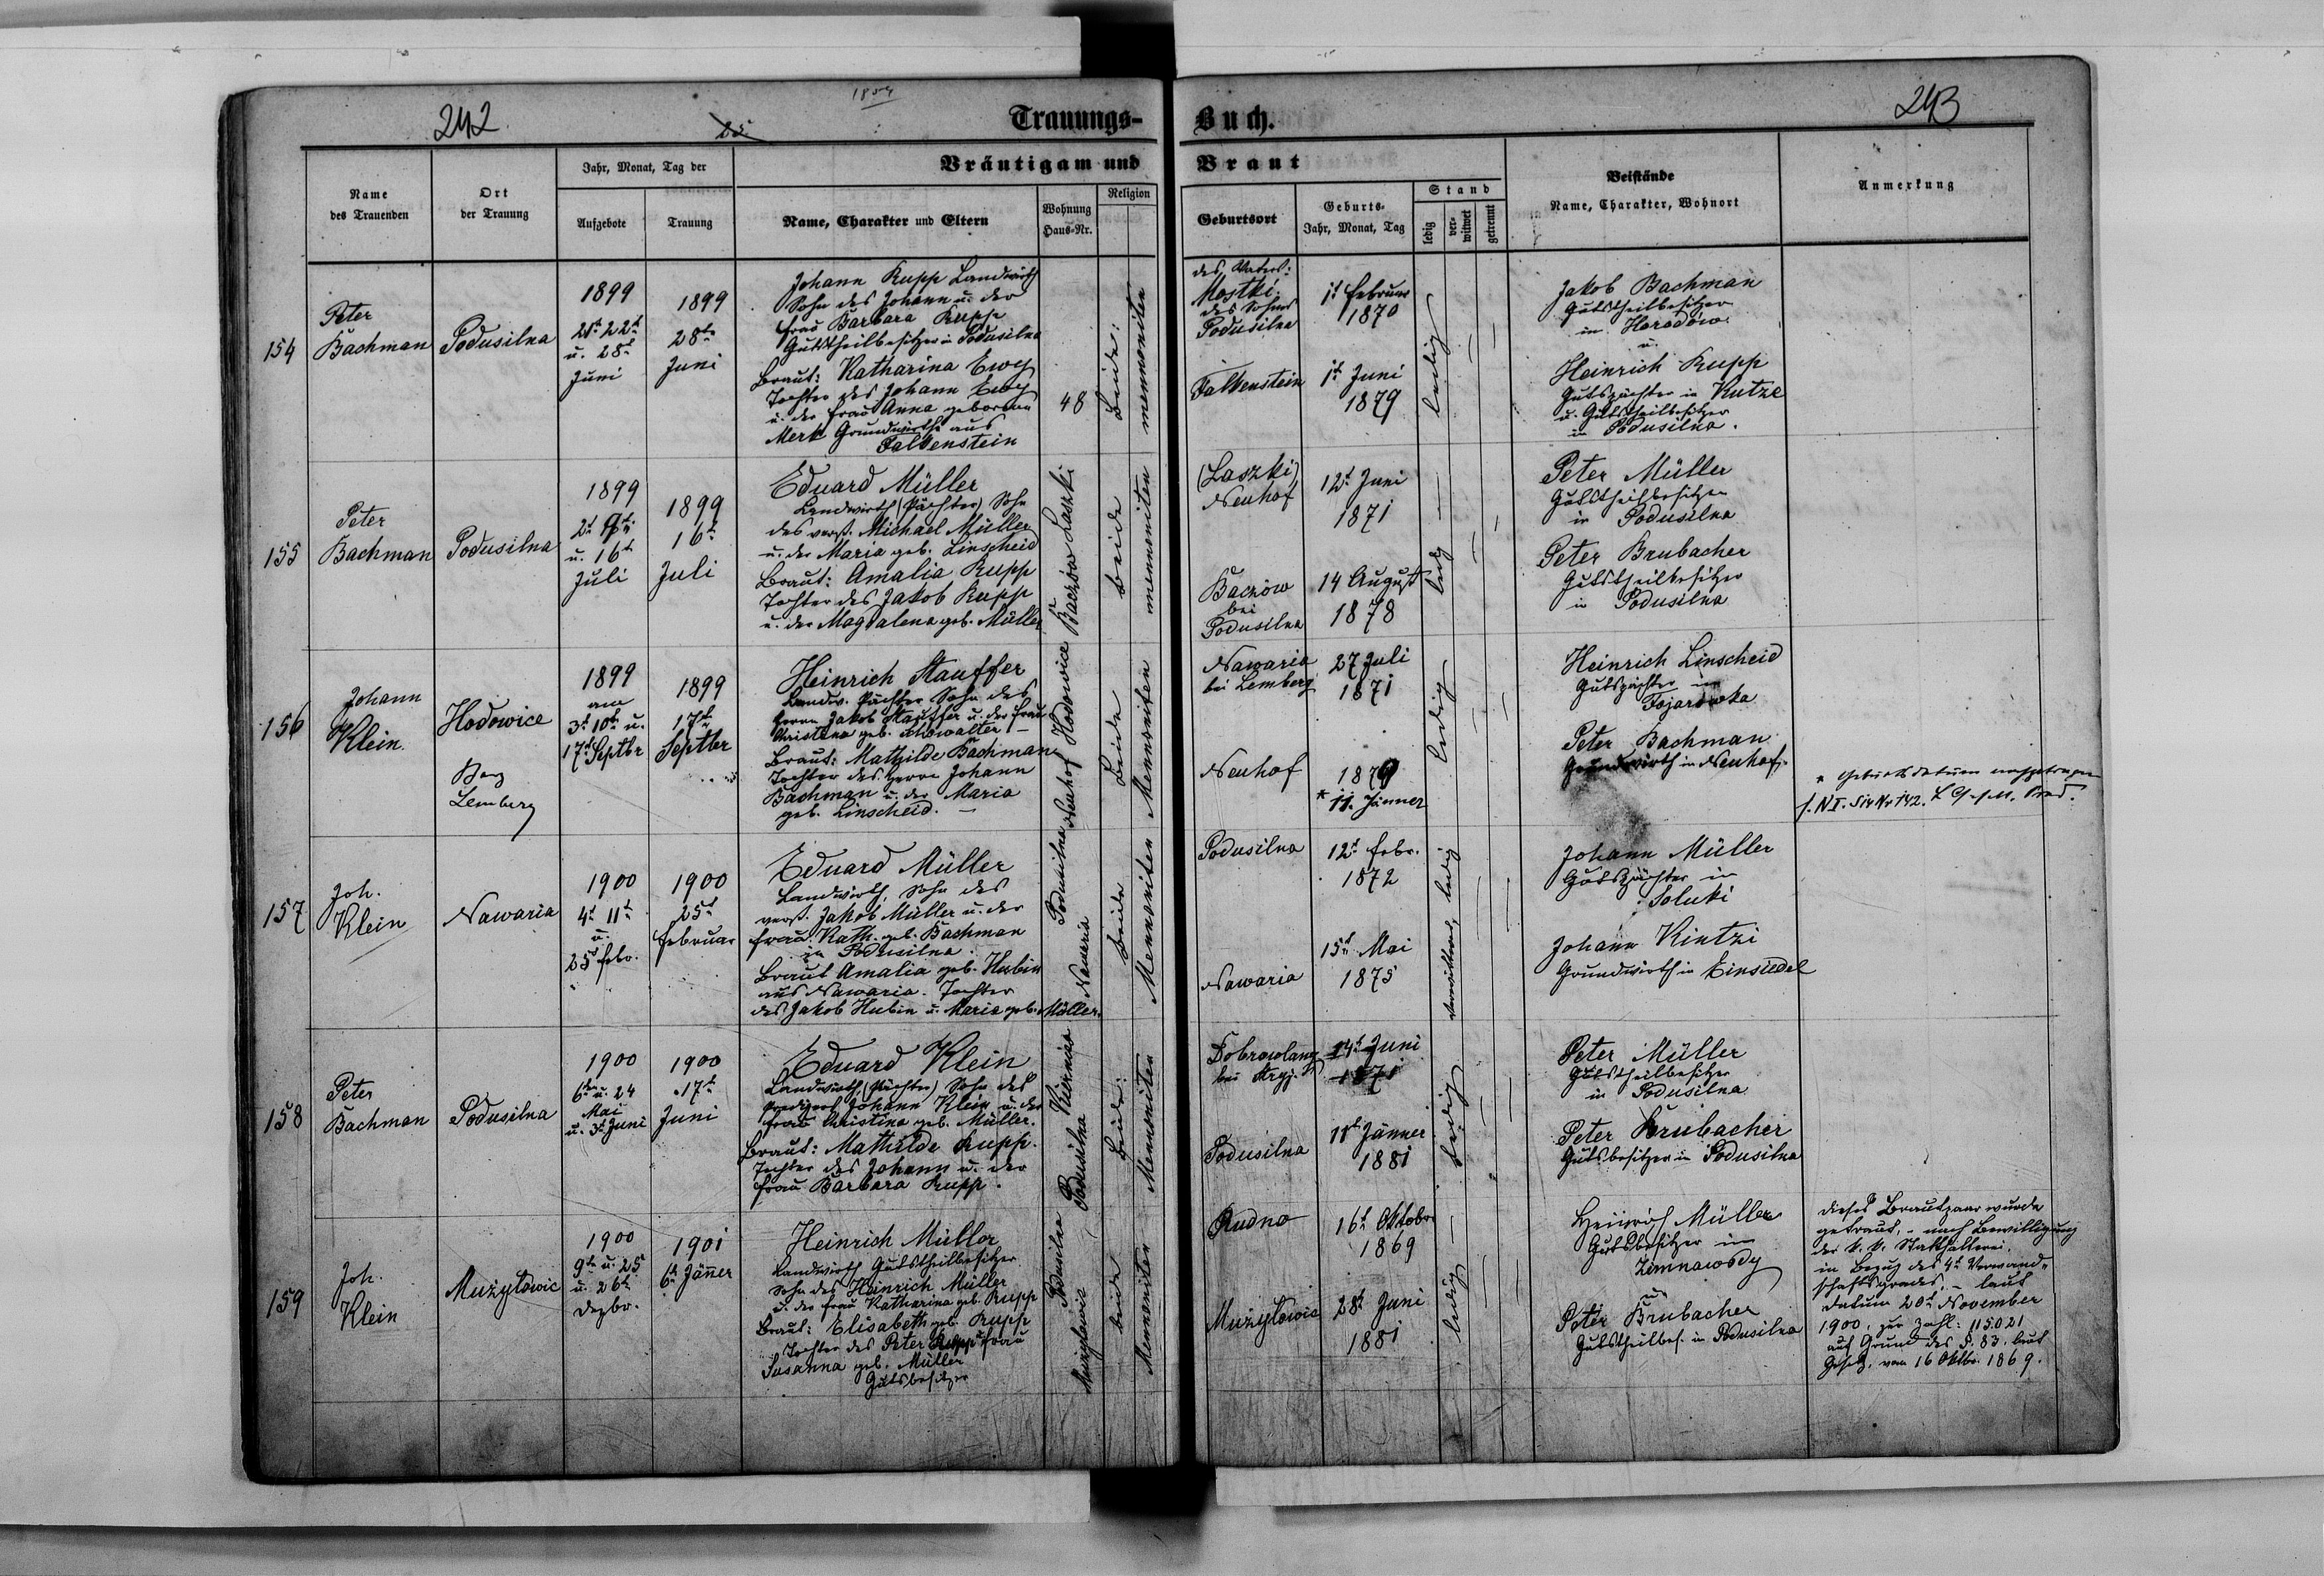 1854
242
25
Trauungs-
Buch.
243
Name des Trauenden
Ort der Trauung
Jahr, Monat, Tag der
Aufgebote
Trauung
Bräutigam und
Braut
Name, Charakter und Eltern
Wohnung Haus-Nr.
Religion
Geburtsort
Geburts-
Jahr, Monat, Tag
Stand
ledig
ver-
witwet
getrennt
Beistände
Name, Charakter, Wohnort
Anmerkung
154
Peter
Bachman
Podusilna
1899
21t 22t
u. 28t
Juni
1899
28te
Juni
Johann Rupp Landwirth
Sohn des Johann u. der
Frau Barbara Rupp
Gutstheilbesitzer in Podusilna
Braut: Katharina Ewy
Tochter des Johann Ewy
u. der Frau Anna geborene
Merk Grundwirthe aus
Falkenstein
48
Beide:
mennoniten
des Vaters:
Mostki.
des Sohnes
Podusilna
1t Februar
1870
Falkenstein
1t Juni
1879
ledig
Jakob Bachman
Gutstheilbesitzer
in Horodów.
u.
Heinrich Rupp
Gutspächter in Kutze
u. Gutstheilbesitzer
in Podusilna.
155
Peter
Bachman
Podusilna
1899
2t 9te
u. 16t
Juli
1899
16te
Juli
Eduard Müller
Landwirth (Pächter) Sohn
des verst. Michael Müller
u. der Maria geb. Linscheid
Braut: Amalia Rupp
Tochter des Jakob Rupp
u. der Magdalena geb. Müller
Baczów Laszki
beide
mennoniten
(Laszki)
Neuhof
12t Juni
1871
Baczów
bei
Podusilna
14 August
1878
ledig
Peter Müller
Gutstheilbesitzer
in Podusilna
Peter Brubacher
Gutstheilbesitzer
in Podusilna
156
Johann
Klein.
Hodowice
Bez
Lemberg
1899
am
3t 10te u.
17t Septbr
1899
17te
Septbr
Heinrich Stauffer
Landw. Pächter Sohn des
Herrn Jakob Stauffer u. der Frau
Christina geb. Schowalter
Braut: Mathilde Bachman
Tochter des Herrn Johann
Bachman u. der Maria
geb. Linscheid.
Neuhof Hodowice
Beide
Mennoniten
Nawaria
bei Lemberg
27 Juli
1871
Neuhof
1879
* 11. Jänner
ledig
Heinrich Linscheid
Gutspächter in
Peter Bachman
Grundwirth in Neuhof.
* Geburtsdatum nachgetragen
157
Joh.
Klein
Nawaria
1900
4t 11te
u.
25t Febr.
1900
25t
Februar
Eduard Müller
Landwirth, Sohn des
verst. Jakob Müller u. der
Frau Kath. geb. Bachman
in Podusilna
Braut Amalia geb. Hubin
aus Nawaria. Tochter
des Jakob Hubin u. Maria geb. Müller.
Nawaria Podusilna
beide
Mennoniten
Podusilna
12t Febr.
1872
Nawaria
15te Mai
1875
verwittwet, ledig
Johann Müller
Gutspächter in
Soluki
Johann Kintzi
Grundwirth in Einsiedel
158
Peter
Bachman
Podusilna
1900
6te u. 24
Mai
u. 3t Juni
1900
17t
Juni
Eduard Klein
Landwirth (Pächter) Sohn des
Predigers Johann Klein u. der
Frau Christina geb. Müller.
Braut: Mathilde Rupp.
Tochter des Johann u. der
Frau Barbara Rupp.
Podusilna Kiernica
Beide:
Mennoniten
14t Juni
1871
Podusilna
11t Jänner
1881
ledig
Peter Müller
Gutstheilbesitzer
in Podusilna
Peter Brubacher
Gutsbesitzer in Podusilna
159
Joh.
Klein
Mużyłowic
1900
9te u. 25
u. 26te
Dezbr.
1901
6te Jäner
Heinrich Müller
Landwirth Gutstheilbesitzer
Sohn des Heinrich Müller
u. der Frau Katharina geb. Rupp
Braut: Elisabeth geb. Rupp
Tochter des Peter Rupp u. Frau
Susanna geb. Müller
Gutsbesitzer
Mużyłowic Podusilna
beide
Mennoniten
Rudno
16t Oktober
1869
Mużyłowic
28t Juni
1881
ledig
Heinrich Müller
Gutsbesitzer in
Zimnawody
Peter Brubacher
Gutstheilbes. in Podusilna
Dieses Brautpaar wurde
getraut, – nach Bewilligung
der k. k. Statthalterei,
in Bezug des 4t Verwand-
schaftsgrades, – laut
Datum 20t November
1900, zur Zahl: 115021
auf Grund des §. 83. laut
Gesetz. vom 16 Oktbr. 1869.